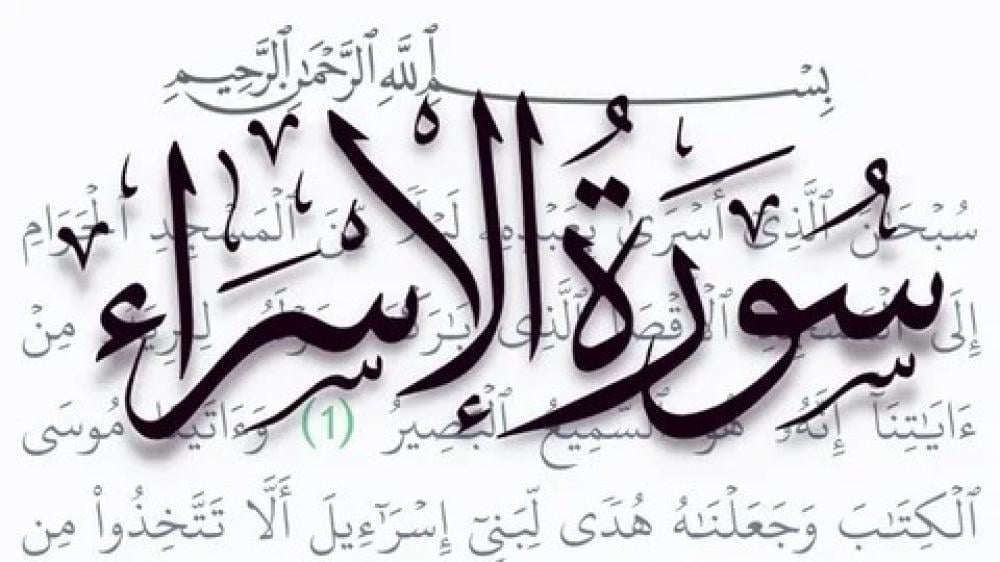 بِسْمِ ٱللَّهِ ٱلرَّحْمَٰنِ ٱلرَّحِيمِ
سُورَةُ الْإِسْرَاءِ
سُبْحَانَ ٱلَّذِىٓ أَسْرَىٰ بِعَبْدِهِۦ لَيْلًا مِّنَ ٱلْمَسْجِدِ ٱلْحَرَامِ
إِلَى ٱلْمَسْجِدِ ٱلْأَقْصَا ٱلَّذِى بَٰرَكْنَا حَوْلَهُۥ لِنُرِيَهُۥ مِنْ
ءَايَٰتِنَآ إِنَّهُۥ هُوَ ٱلسَّمِيعُ ٱلْبَصِيرُ (1) وَءَاتَيْنَا مُوسَى
ٱلْكِتَٰبَ وَجَعَلْنَٰهُ هُدًى لِّبَنِىٓ إِسْرَٰٓءِيلَ أَلَّا تَتَّخِذُوا۟ مِن